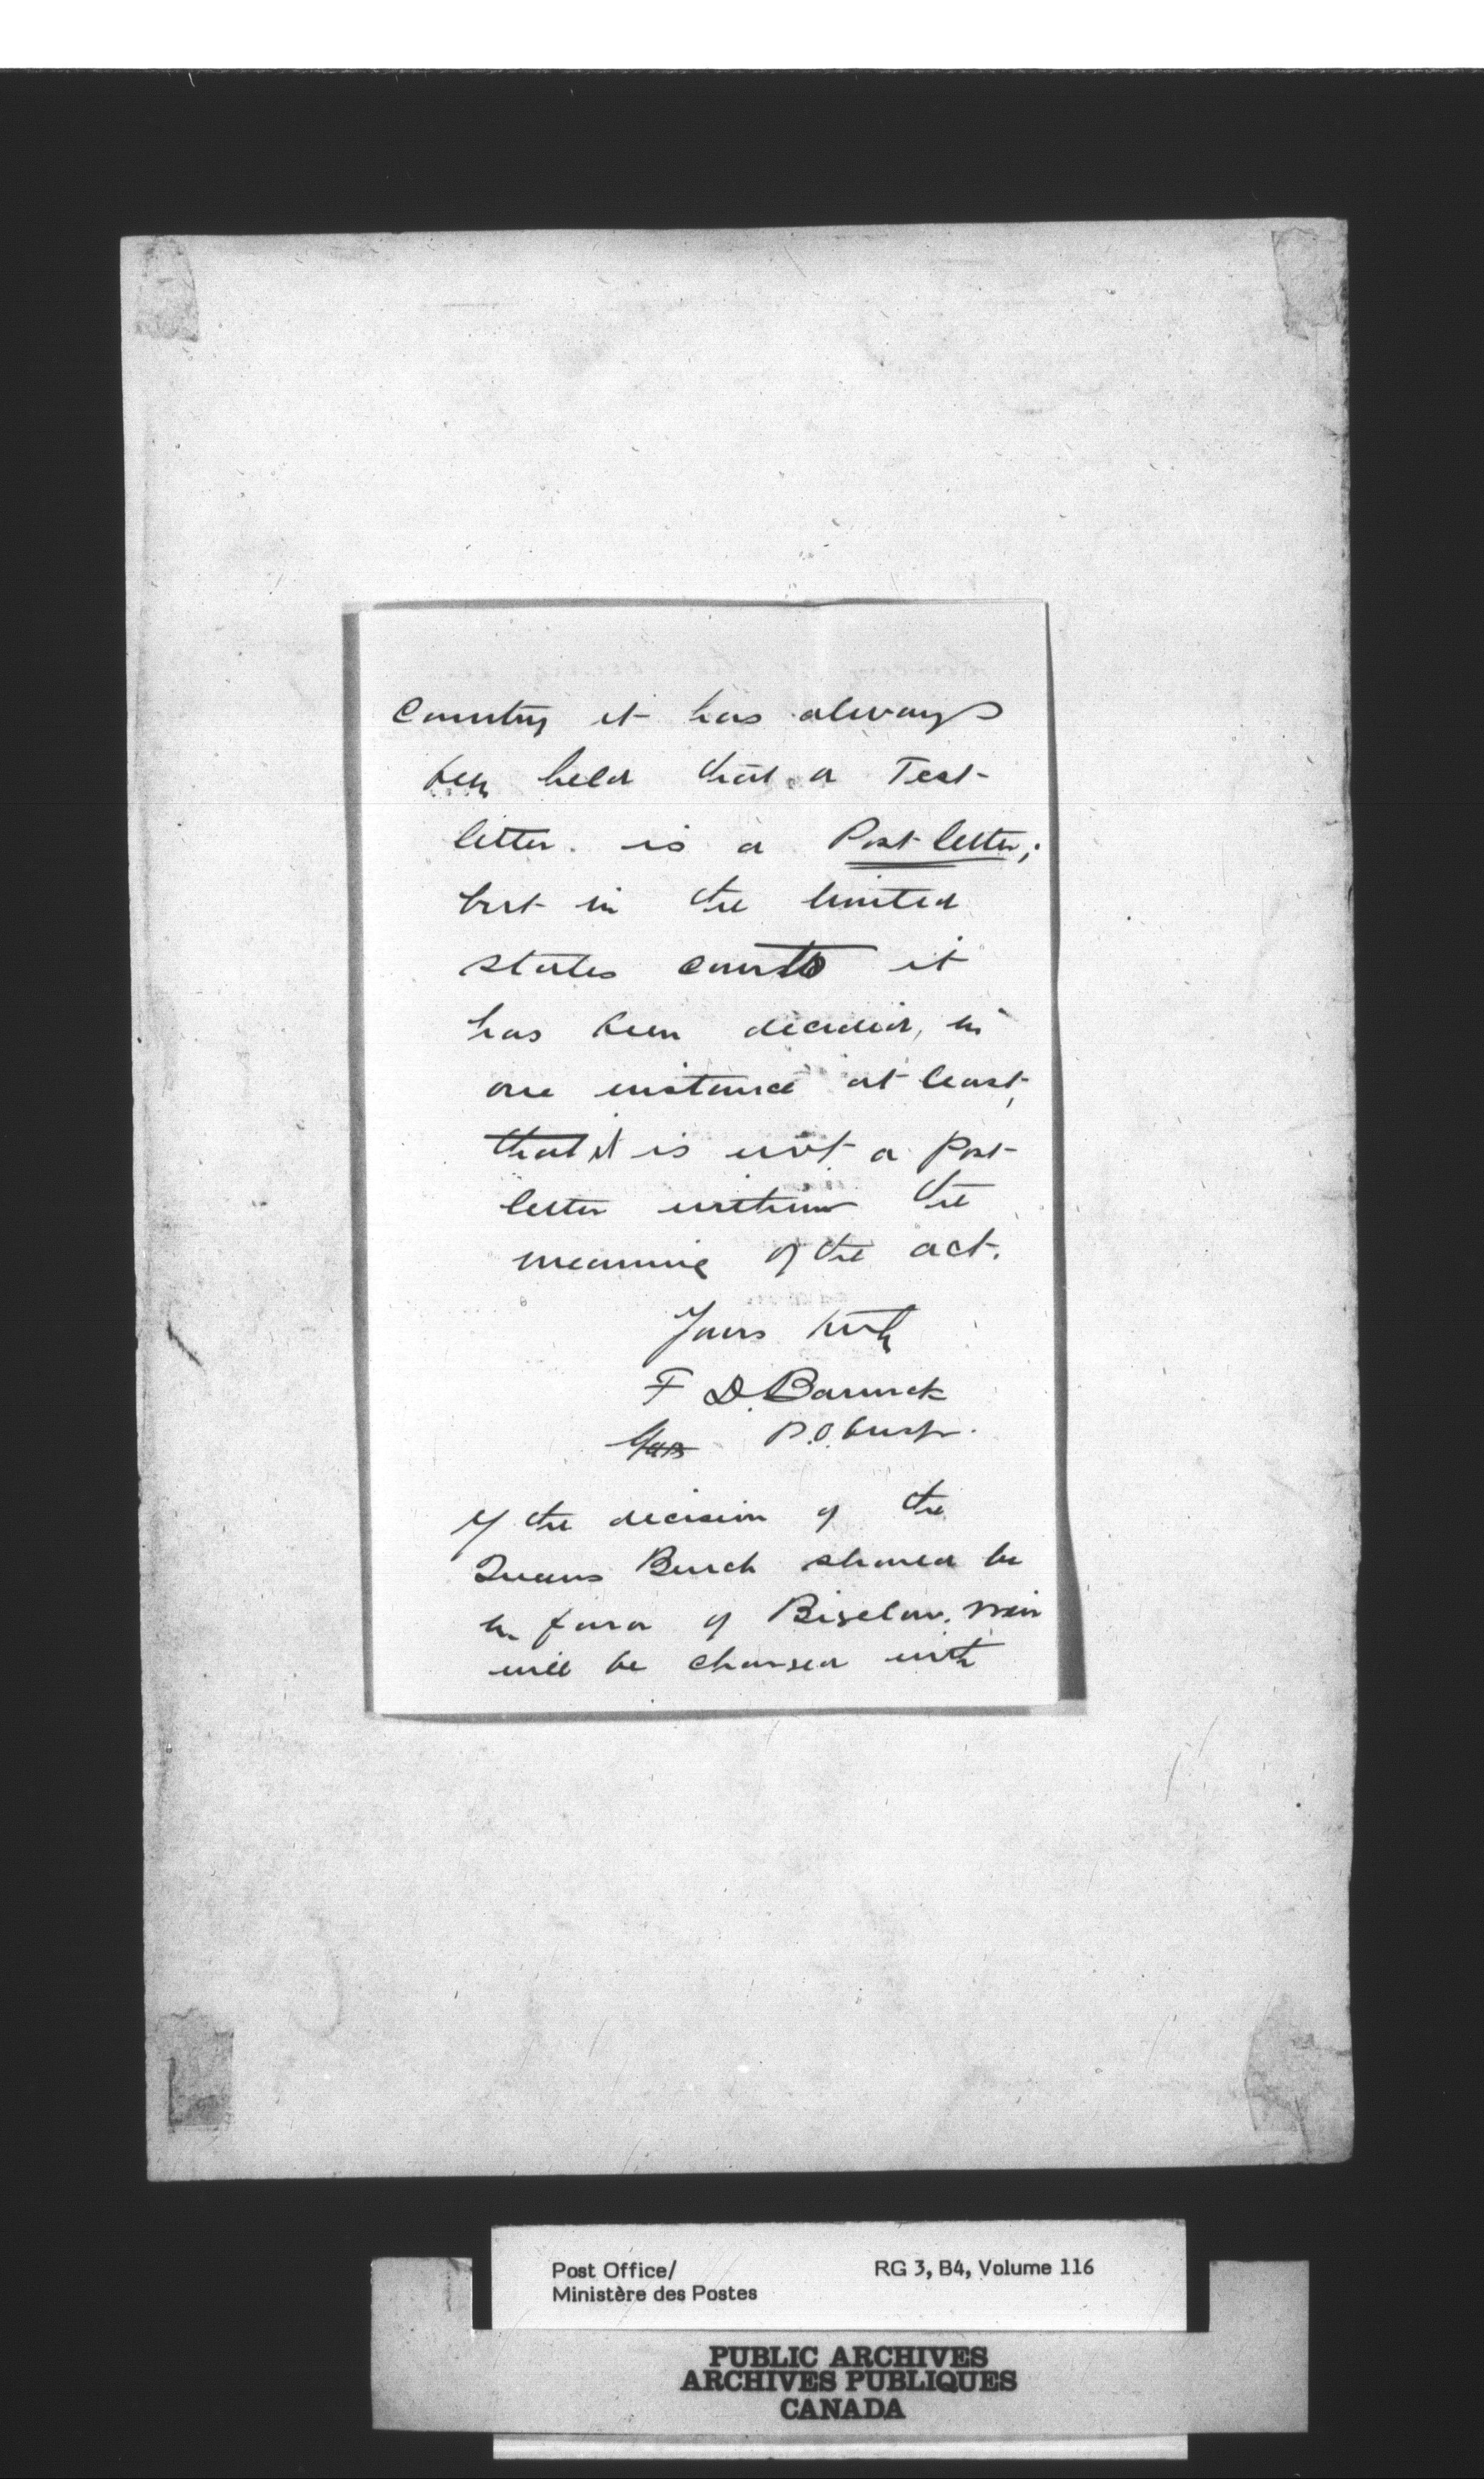 Country it has always
been held that a Test
letter is a Post letter;
but in the United
States courts it
has been decided, in
one instance at least,
that it is not a Post
letter within the
meaning of the act.
Yours truly
F D. Barwick
P.O. Insp.
If the decision of the
Queens Bench should be
in favor of Bigelow.
will be charged with
Post Office/
Ministère des Postes
RG 3, B4, Volume 116
PUBLIC ARCHIVES
ARCHIVES PUBLIQUES
CANADA